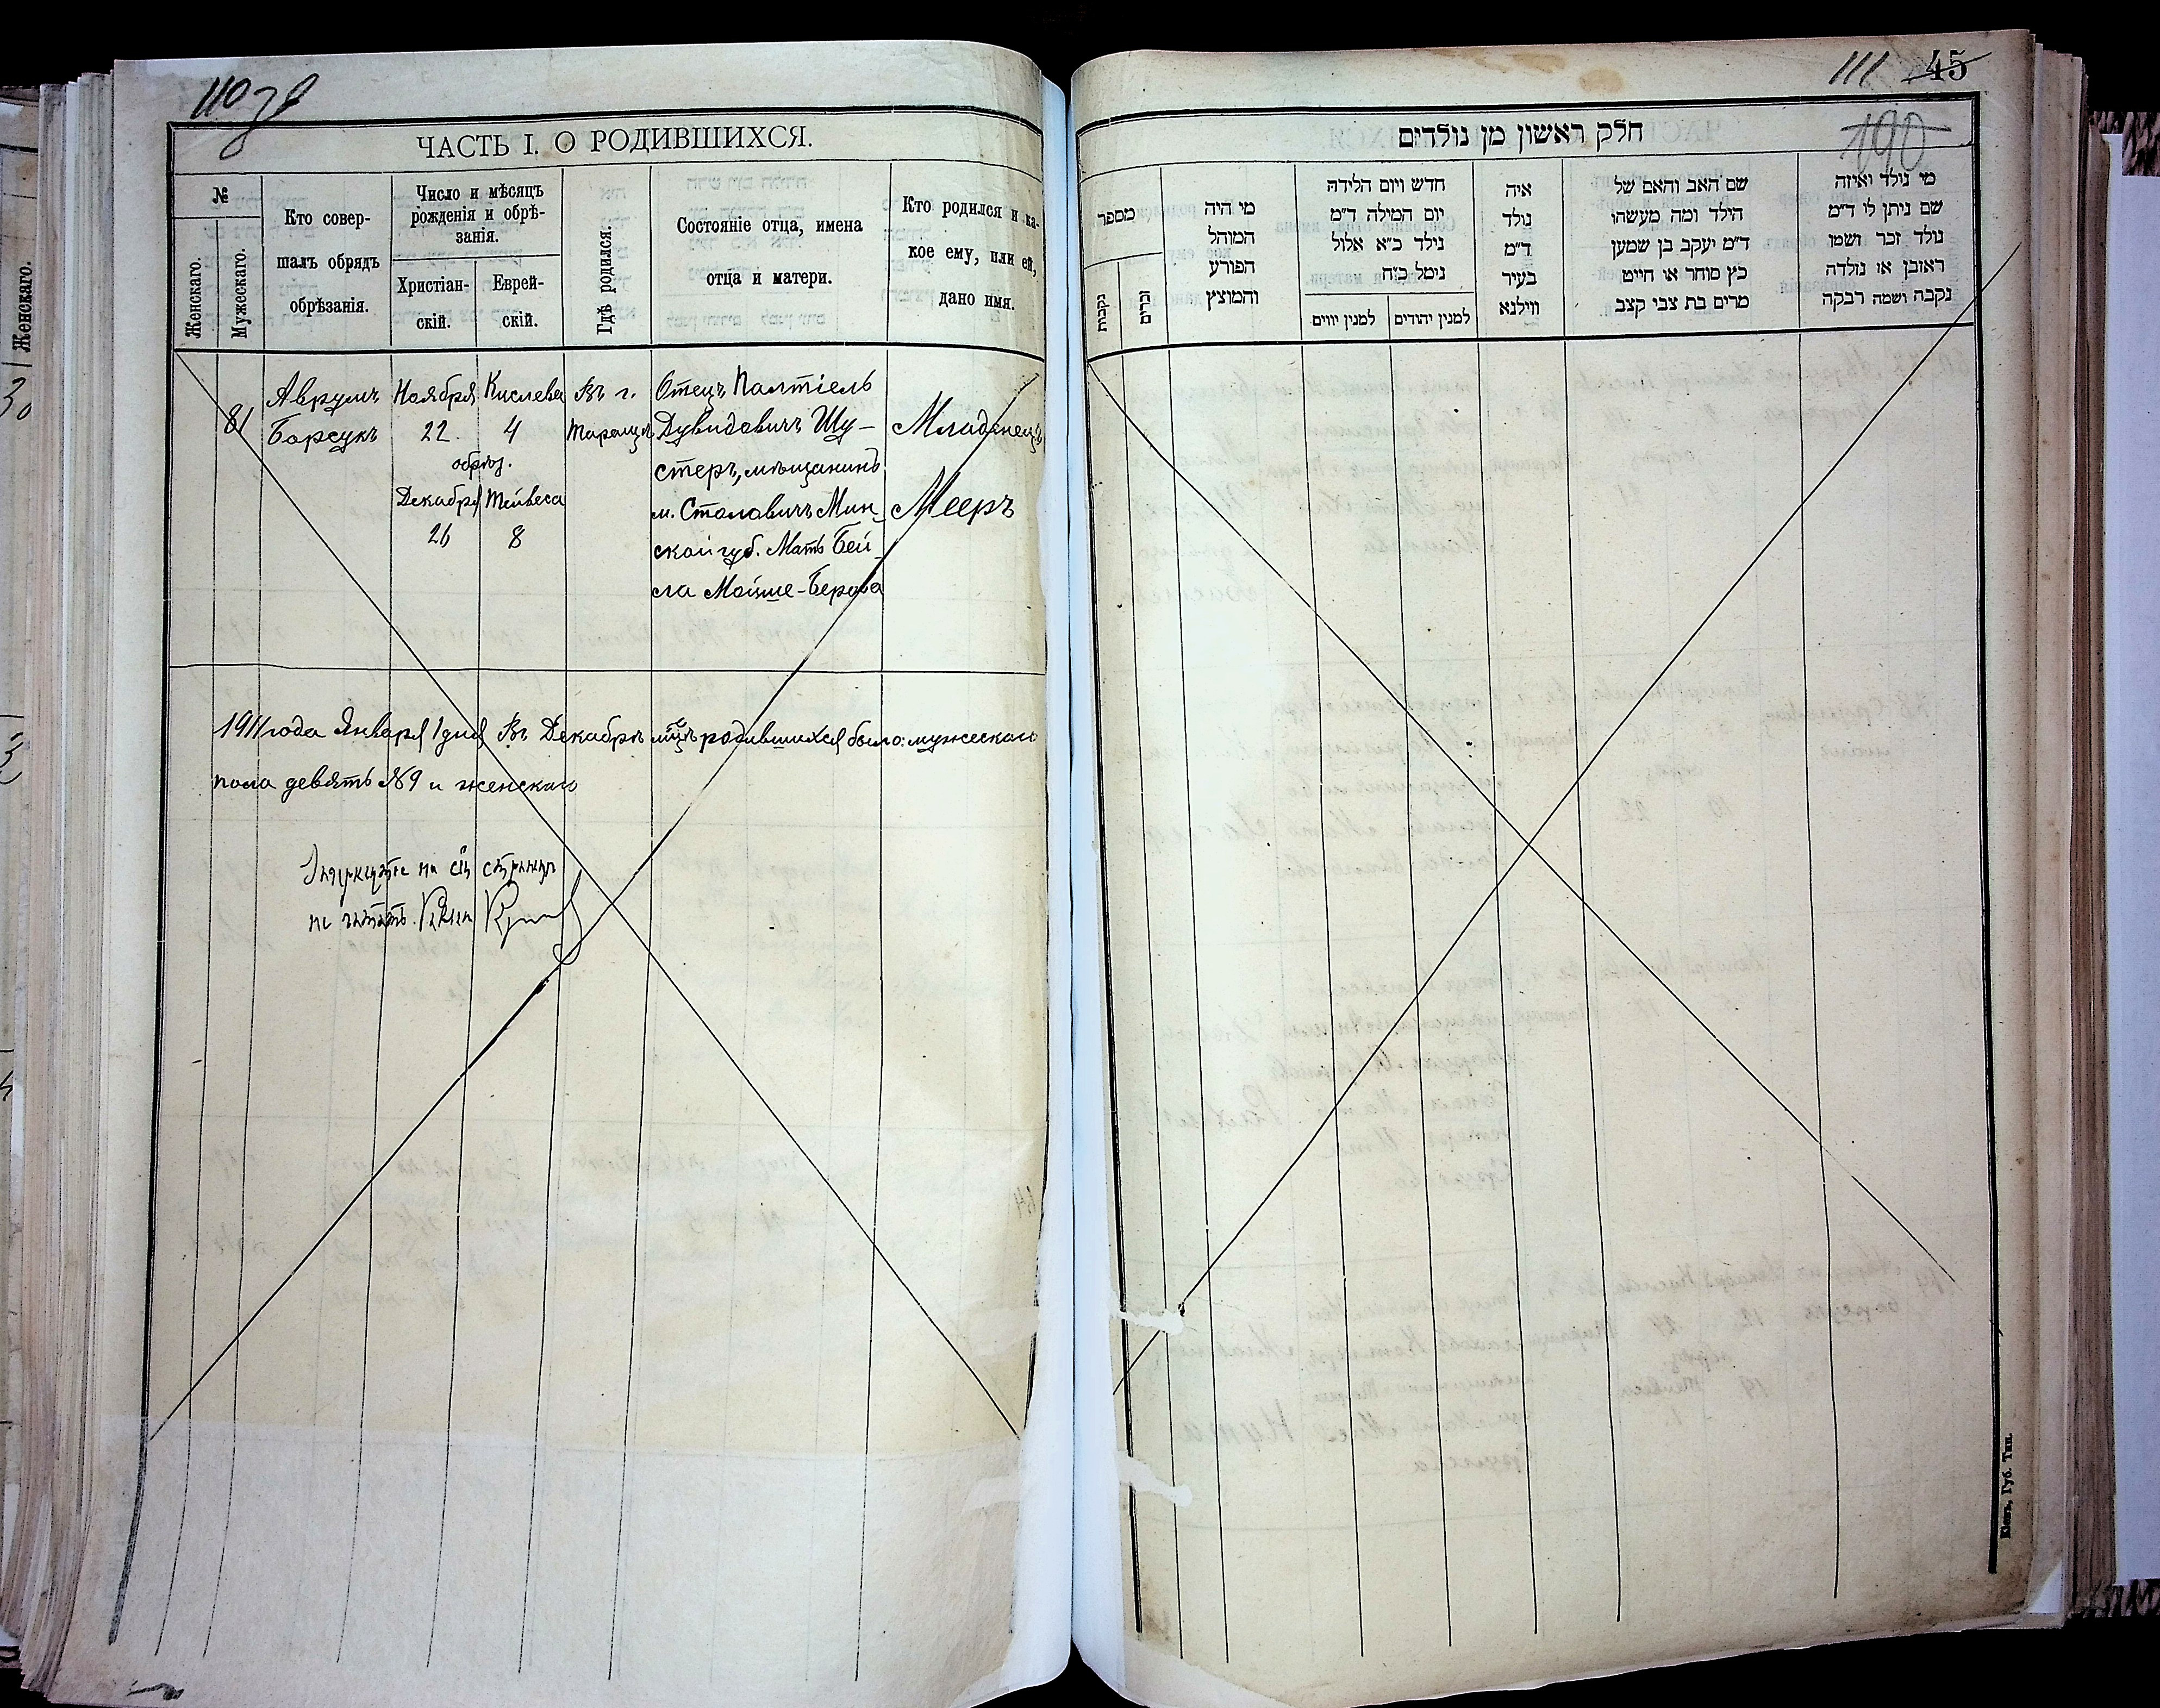 110
ЧАСТЬ I. О РОДИВШИХСЯ.
№
Женскаго.
Мужескаго.
Кто совер-
шалъ обрядъ
обрѣзанія.
Число и мѣсяцъ
рожденія и обрѣ-
занія.
Христіан-
скій.
Еврей-
скій.
Гдѣ родился.
Состояніе отца, имена
отца и матери.
Кто родился и ка-
кое ему, или ей,
дано имя.
81
Аврумъ
Борсукъ
Ноября
22
обрѣз.
Декабря
26
Кислева
4
Тейвеса
8
Въ г.
Таращѣ
Отецъ Палтіель
Дувидовичъ Шу-
стеръ, мѣщанинъ
м. Столовичъ Мин-
ской губ. Мать Бей-
ла Мойше-Берова
Младенецъ
Мееръ
1911 года Января 1 дня Въ Декабрѣ мцѣ родившихся было: мужескаго
пола девять №9 и женскаго
на сей страницѣ
не читать.
Женскаго.
111 45
190
חלק ראשון מן נולדים
מספר
נקבות
זכרים
מי היה
המוהל
הפורע
והמוצץ
חדש ויום הלידה
יום המילה ד״מ
נולד כ״א אלול
נימל כ״ח
למנין יווים
למנין יהודים
איה
נולד
ד״מ
בעיר
ווילנא
שם האב והאם של
הילד ומה מעשהו
ד״מ יעקב בן שמען
כץ סוחר או חייט
מרים בת צבי קצב
מי נולד ואיזה
שם ניתן לו ד״מ
נולד זכר ושמו
ראובן או נולדה
נקבה ושמה רבקה
Кіевъ, Губ. Тип.